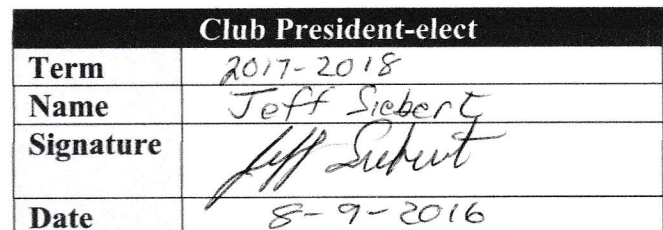 Club President-elect
Term 2017-2018
Name Jeff Siebert
Signature Jeff Siebert
Date 8-9-2016